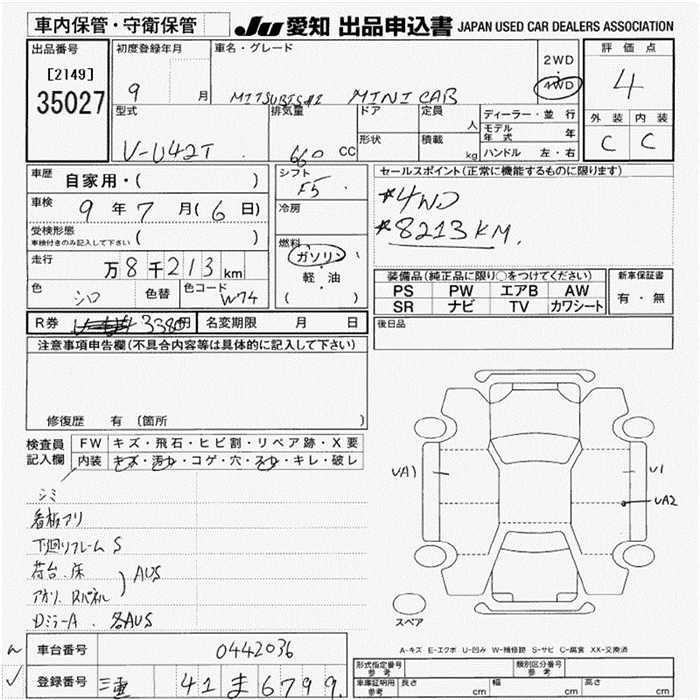 車内保管・守衛保管 JU 愛知 出品申込書 JAPAN USED CAR DEALERS ASSOCIATION
出品番号 初度登録年月 車名・グレード 2WD 評価点
[2149] 35027 9 月 MITSUBISHI MINI CAB 4WD 4
型式 排気量 ドア 定員 人 ディーラー・並行 外装 内装
V-U42T 660 cc 形状 積載 kg モデル年式 年 C C
ハンドル 左・右
車歴 自家用・( ) シフト F5 セールスポイント(正常に機能するものに限ります)
車検 9年 7月(6日) 冷房 *4WD
受検形態 車検付きのみ記入して下さい ( ) *8213KM.
走行 万8千213km 燃料 ガソリン 軽・油 ( )
装備品(純正品に限り○をつけてください) 新車保証書
PS PW エアB AW 有・無
SR ナビ TV カワシート
色 シロ 色替 色コード W74
後日品
R券 3380円 名変期限 月 日
注意事項申告欄(不具合内容等は具体的に記入して下さい)
修復歴 有 (箇所 )
検査員記入欄 FW キズ・飛石・ヒビ割・リペア跡・X要
内装 キズ・汚れ・コゲ・穴・スレ・キレ・破レ
シミ
看板アリ
下廻りフレーム S
荷台.床
アオリ. Rパネル ) AUS
Dミラー A. 各AUS
UA1 U1
UA2
スペア
A-キズ E-エクボ U-凹み W-補修跡 S-サビ C-腐食 XX-交換済
車台番号 0442036
登録番号 三重 41 ま 6799
形式指定番号 参考 類別区分番号 参考
車庫証明用 参考 長さ cm 幅 cm 高さ cm